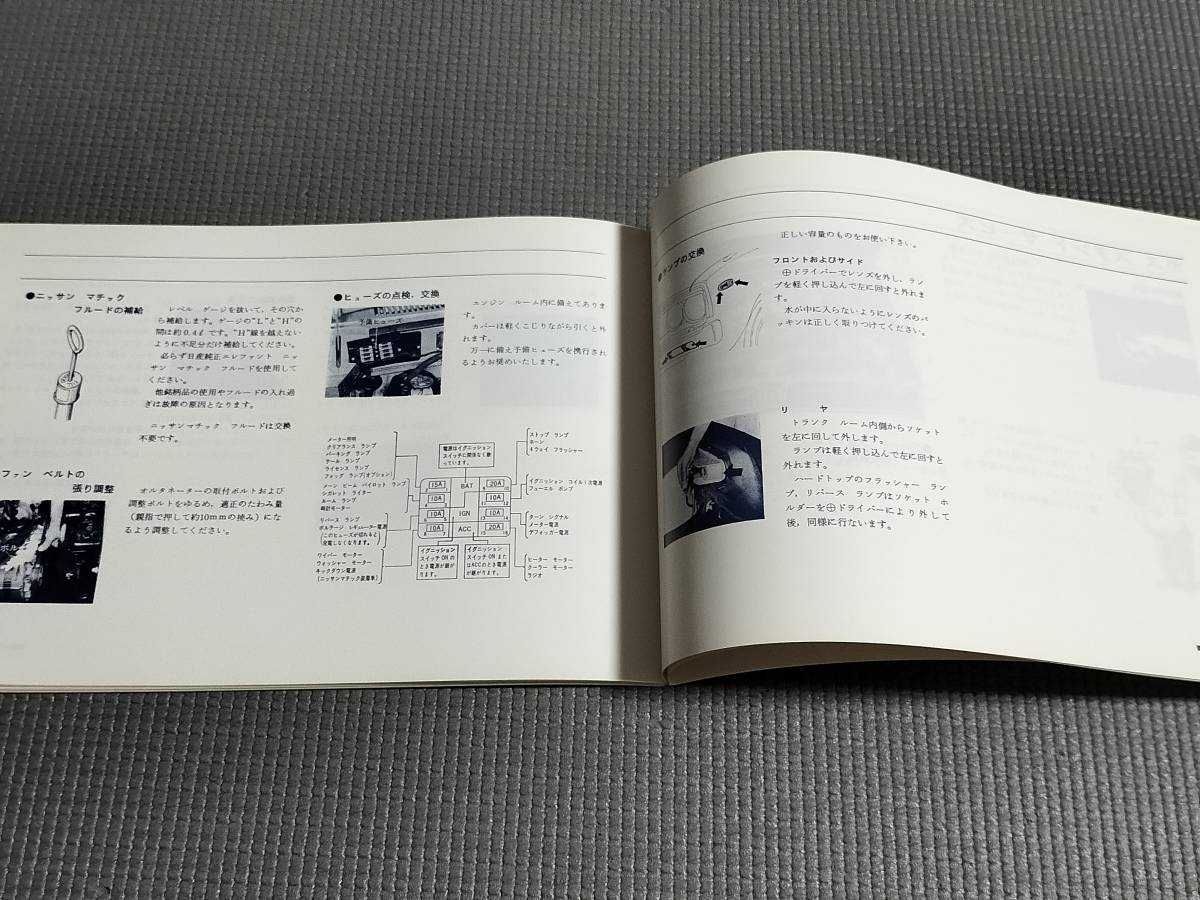 ●ニッサン マチック
フルードの補給
レベル ゲージを抜いて、その穴か
ら補給します。ゲージの"L"と"H"の
間は約0.4ℓです。"H"線を越えない
ように不足分だけ補給してください。
必らず日産純正エレファント ニッ
サン マチック フルードを使用して
ください。
他銘柄品の使用やフルードの入れ過
ぎは故障の原因となります。
ニッサンマチック フルードは交換
不要です。
ファン ベルトの
張り調整
オルタネーターの取付ボルトおよび
調整ボルトをゆるめ、適正のたわみ量
(親指で押して約10mmの撓み)にな
るよう調整してください。
●ヒューズの点検、交換
予備ヒューズ
エンジン ルーム内に備えてありま
す。
カバーは軽くこじりながら引くと外
れます。
万一に備え予備ヒューズを携行され
るようお奨めいたします。
メーター照明
クリアランス ランプ
パーキング ランプ
テール ランプ
ライセンス ランプ
フォッグ ランプ(オプション)
メーン ビーム パイロット ランプ
シガレット ライター
ルーム ランプ
時計モーター
リバース ランプ
ボルテージ レギュレーター電源
(このヒューズが切れると
充電しなくなります。
ワイパー モーター
ウォッシャー モーター
キックダウン電源
(ニッサンマチック装着車)
電源はイグニッション
スイッチに関係なく来
っています。
15A
BAT
20A
10A
10A
10A
IGN
10A
10A
ACC
20A
イグニッション
スイッチONの
とき電源が継が
ります。
イグニッション
スイッチONまた
はACCのとき電源
が継がります。
ストップ ランプ
ホーン
4ウェイ フラッシャー
イグニッション コイル1次電源
フューエル ポンプ
ターン シグナル
メーター電源
デフォッガー電源
ヒーター モーター
クーラー モーター
ラジオ
●ランプの交換
正しい容量のものをお使い下さい。
フロントおよびサイド
⊕ドライバーでレンズを外し、ラン
プを軽く押し込んで左に回すと外れま
す。
水が中に入らないようにレンズのパ
ッキンは正しく取りつけてください。
リ ヤ
トランク ルーム内側からソケット
を左に回して外します。
ランプは軽く押し込んで左に回すと
外れます。
ハードトップのフラッシャー ラン
プ、リバース ランプはソケット ホ
ルダーを⊕ドライバーにより外して
後、同様に行ないます。